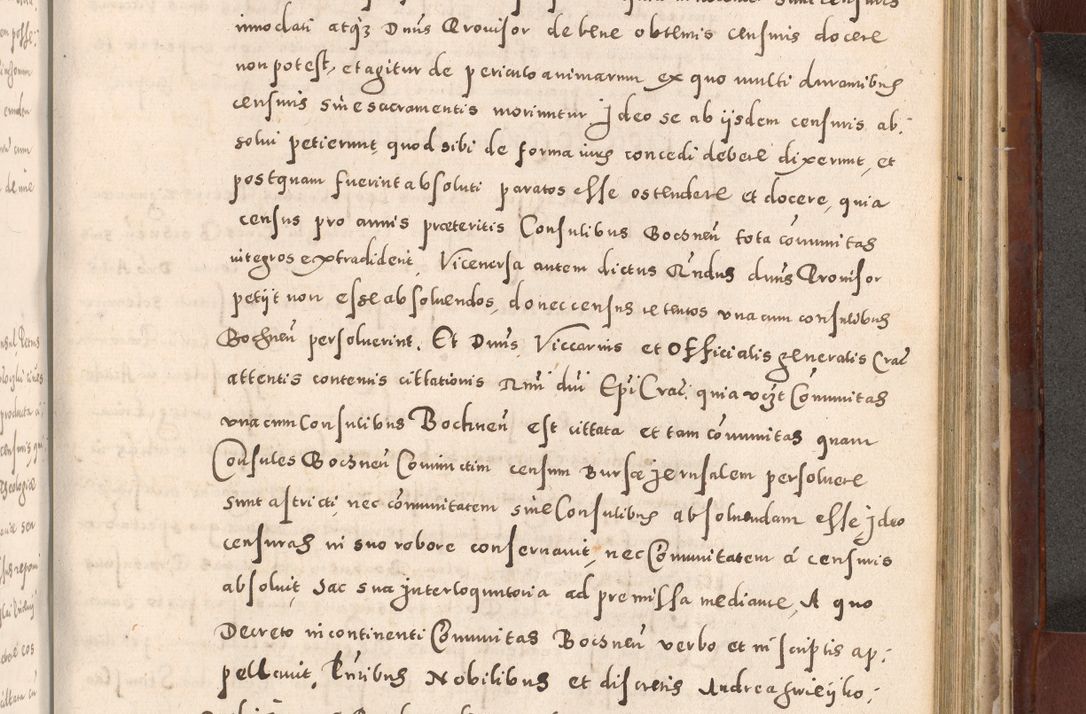 innodati atq3 Dnūs Provisor de bene obtemis censuris docere
non potest, et agitur de periculo animarum ex quo multi durantibus
censuris sine sacramentis moriuntur Jdeo se ab ijsdem censuris ab,
solui petierunt, quod sibi de forma iuris concedi debere dixerunt, et
postquam fuerint absoluti paratos esse ostendere et docere, quia
census pro annis præteritis Consulibus Bochneñ tota cōmunitas
integros extradiderit, Viceversa autem dictus Rñdus dnūs Provisor
petijt non esse absoluendos, donec census retentos vna cum consulibus
Bochneñ persoluerint. Et Dnūs Viccarius et Officialis generalis Crac̃
attentis contentis cittationis Rmi dni Epi Crac̃, quia vc3t Cōmunitas
vna cum Consulibus Bochneñ est cittata et tam cōmunitas quam
Consules Bochneñ Coniunctim censum Bursæ Jerusalem persoluere
sunt astricti, nec cōmunitatem sine Consulibus absoluendam esse, Jdeo
censuras in suo robore conservauit, nec Cōmunitatem á censuris
absoluit, hac sua Interloquutoria ad premissa mediante, A quo
Decreto incontinenti Cōmunitas Bochneñ verbo et in scriptis ap,
pellauit, Pñtibus Nobilibus et discretis Andrea